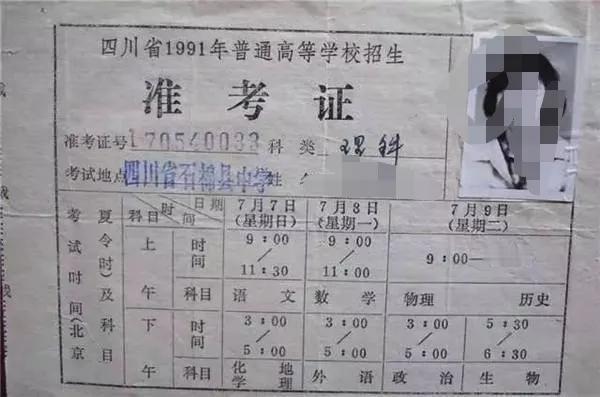 四川省1991年普通高等学校招生
准考证
准考证号170540033 科类 理科
考试地点四川省石棉县中学 姓
考试时间(北京夏令时)及科目 日期 时间 科目 7月7日(星期日) 7月8日(星期一) 7月9日(星期二)
上午 时间 9:00/11:30 9:00/11:30 9:00—
科目 语文 数学 物理 历史
下午 时间 3:00/5:00 3:00/5:00 3:00/5:00 5:30/6:30
科目 化学 地理 外语 政治 生物